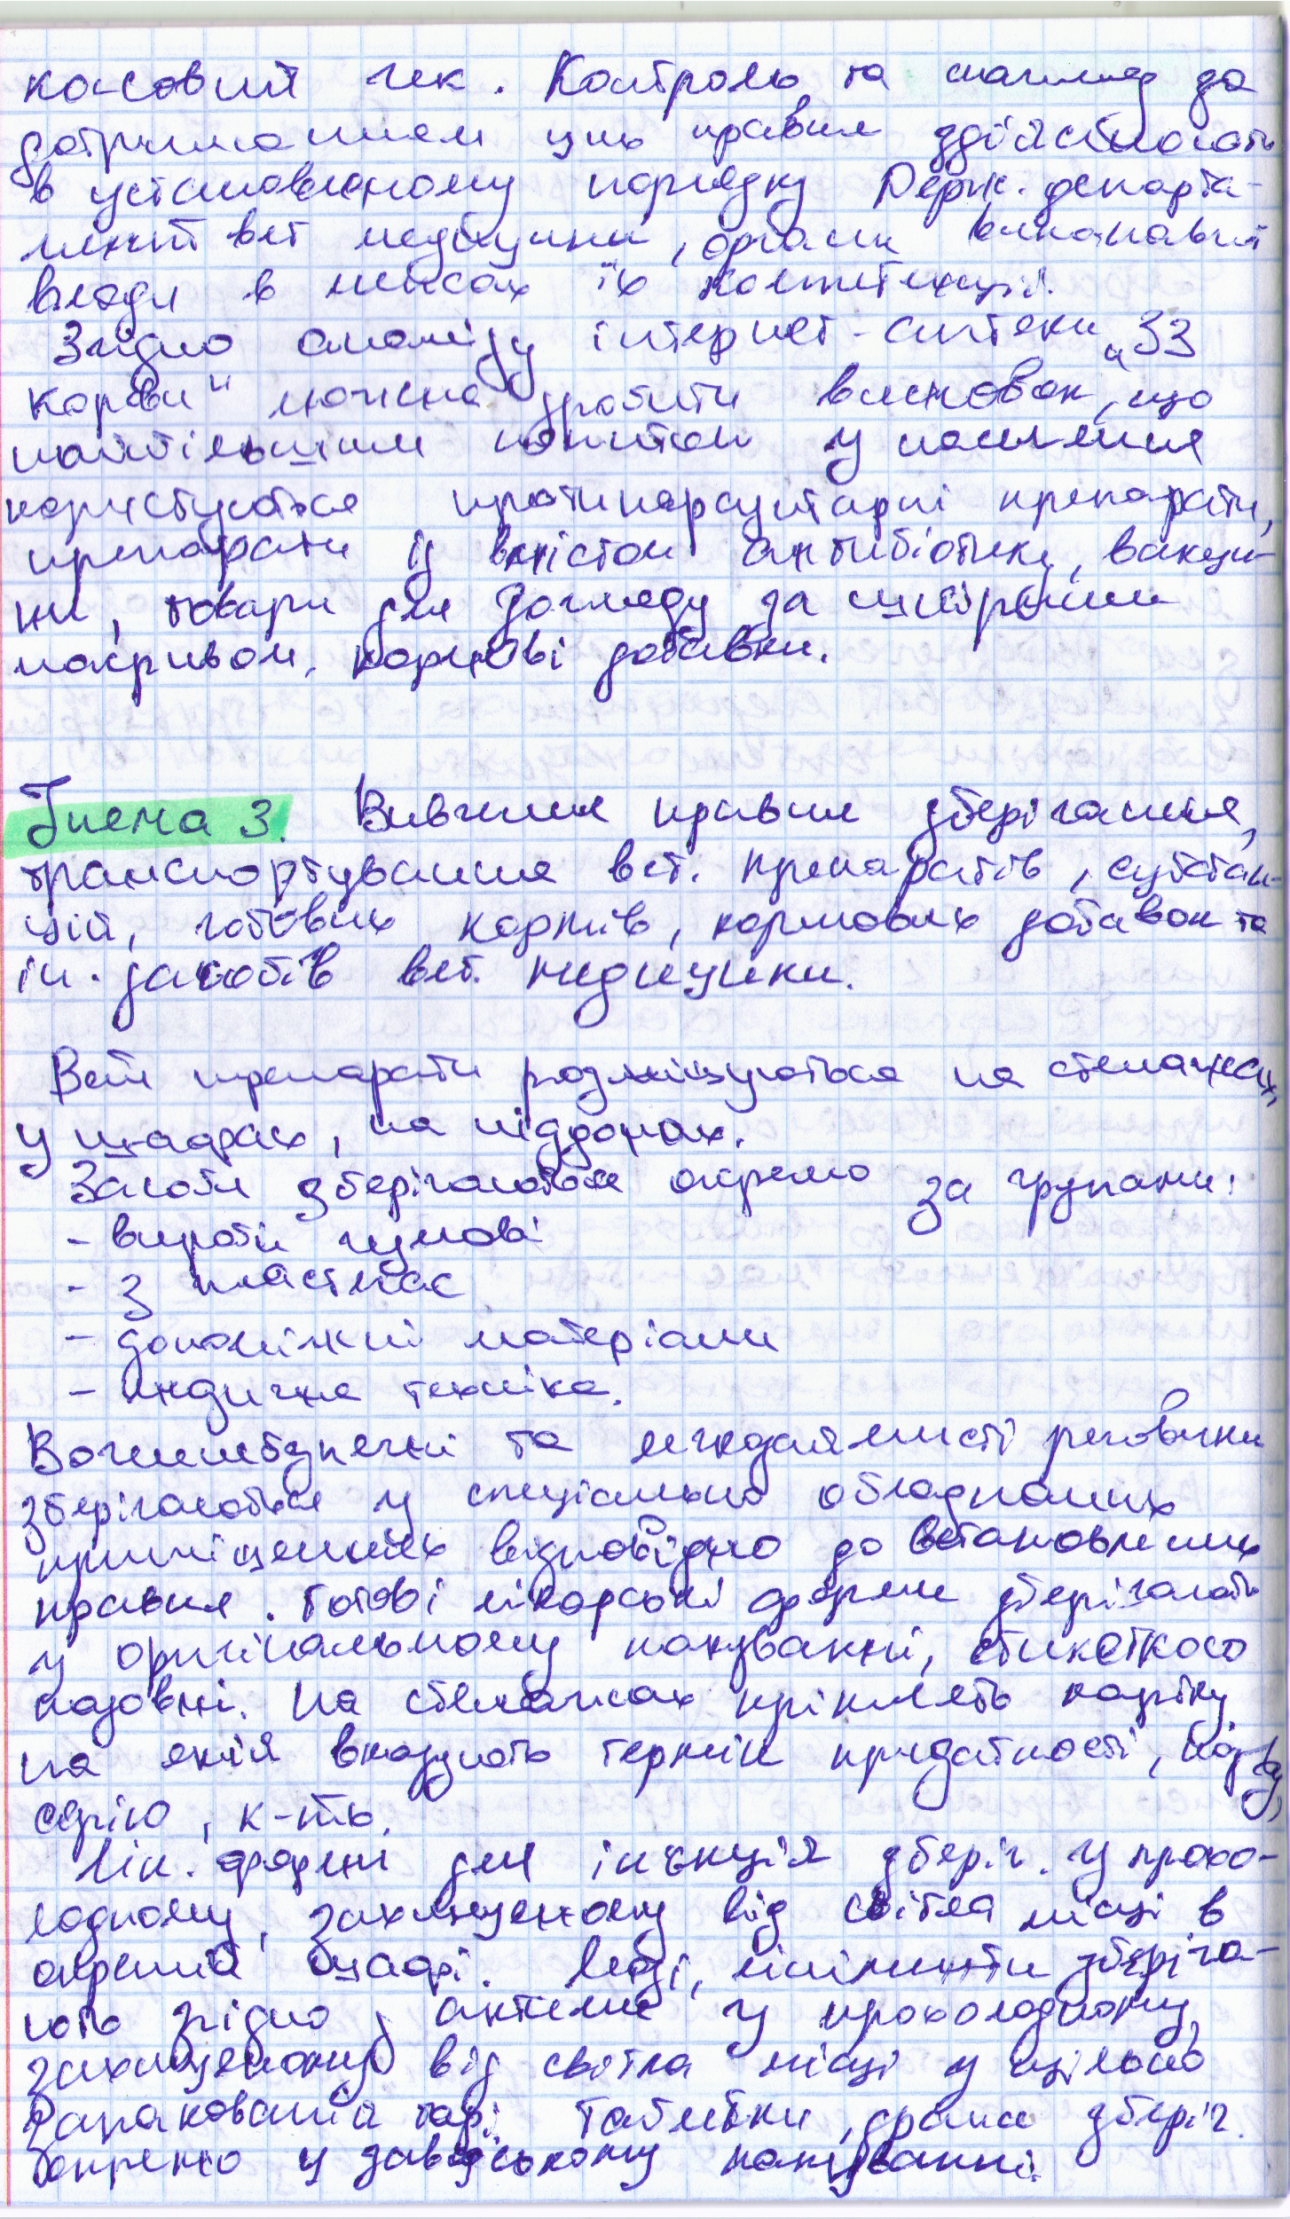 касовий чек. Контроль та нагляд за
дотриманням цих правил здійснюють
в установленому порядку Держ. департа-
мент вет медицини, органи виконавчої
влади в межах їх компетенції.
Згідно аналізу інтернет-аптеки „33
корови" можна зробити висновок, що
найбільшим попитом у населення
користуються протипаразитарні препарати,
препарати із вмістом антибіотику, вакци-
ни, товари для догляду за шкіряним
покривом, кормові добавки.
Тиема 3. Вивчення правил зберігання,
транспортування вет. препаратів, субстан-
цій, готових кормів, кормових добавок та
ін. засобів вет. медицини.
Вет препарати розміщуються на стелажах,
у шафах, на піддонах.
Засоби зберігаються окремо за групами:
- вироби гумові
- з пластмас
- допоміжні матеріали
- медична техніка.
Вогненебезпечні та легкозаймисті речовини
зберігаються у спеціально обладнаних
приміщеннях відповідно до встановлених
правил. Готові лікарські форми зберігають
у оригінальному пакуванні, етикеткою
назовні. На стелажах кріплять картку
на якій вказують термін придатності,
серію, к-ть.
Лік. форми для ін'єкцій зберіг. у прохо-
лодному, захищеному від світла місці в
окремій шафі. Мазі, лініменти зберіга-
ють згідно у прохолодному,
захищеному від світла місці у щільно
запакованій тарі. Таблетки, драже зберіг.
окремо у заводському пакуванні.